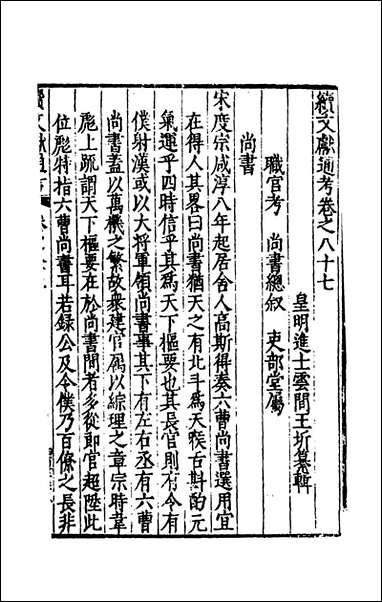 續文獻通考卷之八十七
皇明進士雲間王圻纂輯
職官考 尚書總叙 吏部堂屬
尚書
宋度宗咸淳八年起居舍人高斯得奏六曹尚書選用宜
在得人其畧曰尚書猶天之有北斗爲天喉舌斟酌元
氣運乎四時信乎其爲天下樞要也其長官則有令有
僕射漢或以大將軍領尚書事其下有左右丞有六曹
尚書蓋以萬機之繁故衆建官屬以綜理之章宗時韋
彪上疏謂天下樞要在於尚書間者多從郎官超陞此
位彪特指六曹尚書耳若録公及令僕乃百僚之長非